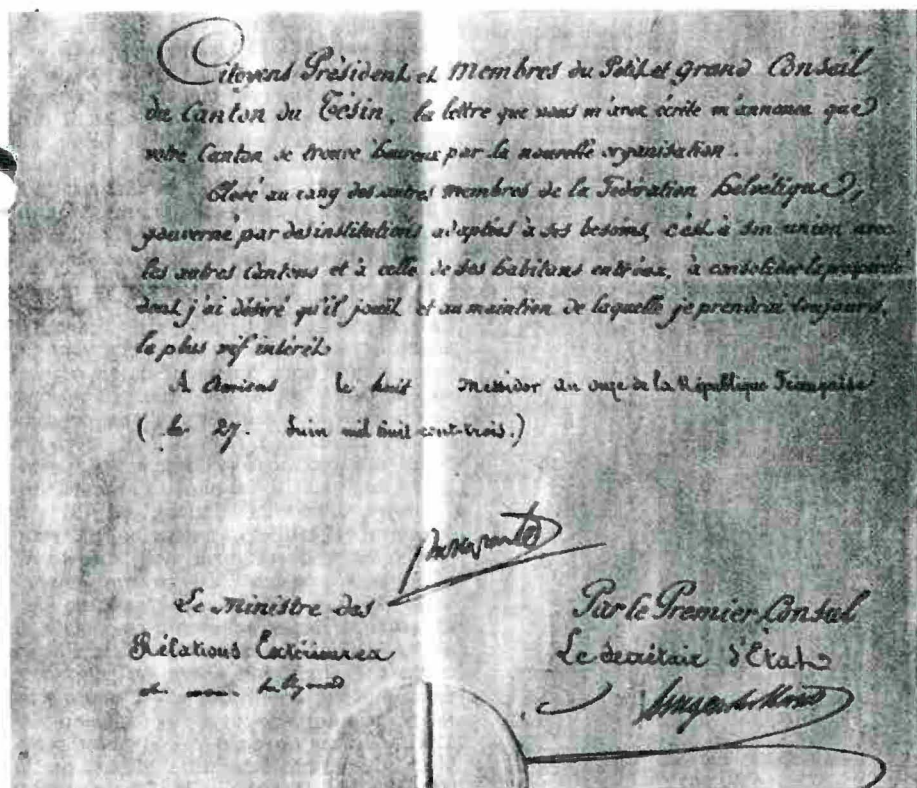 Citoyens Président et Membres du Petit et Grand Conseil
du Canton du Tésin, la lettre que vous m'avez écrite m'annonce que
votre Canton se trouve heureux par la nouvelle organisation.
Elevé au rang des autres membres de la Fédération Helvétique,
gouverné par des institutions adaptées à ses besoins, c'est à son union avec
les autres Cantons et à celle de ses habitans entr'eux, à consolider la prospérité
dont j'ai désiré qu'il jouît et au maintien de laquelle je prendrai toujours,
le plus vif intérêt.
A Amiens le huit Messidor an onze de la République Française
( le 27. Juin mil huit cent-trois.)
Bonaparte
Le Ministre des
Rélations Extérieures
Par le Premier Consul
Le Secrétaire d'Etat
Hugues B. Maret